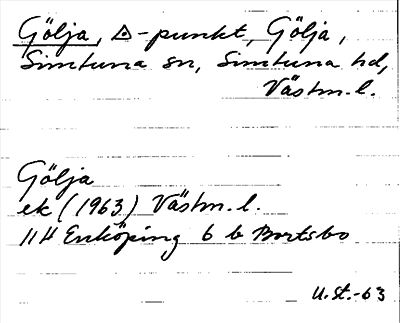 Gölja, △-punkt, Gölja,
Simtuna sn, Simtuna hd,
Västm.l.
Gölja
ek (1963) Västm.l.
11H Enköping 6 b Bortsbo
U.St.-63